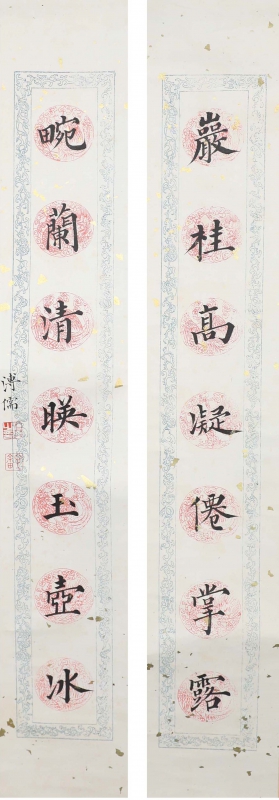 巖桂高凝僊掌露
畹蘭清暎玉壺冰
溥儒